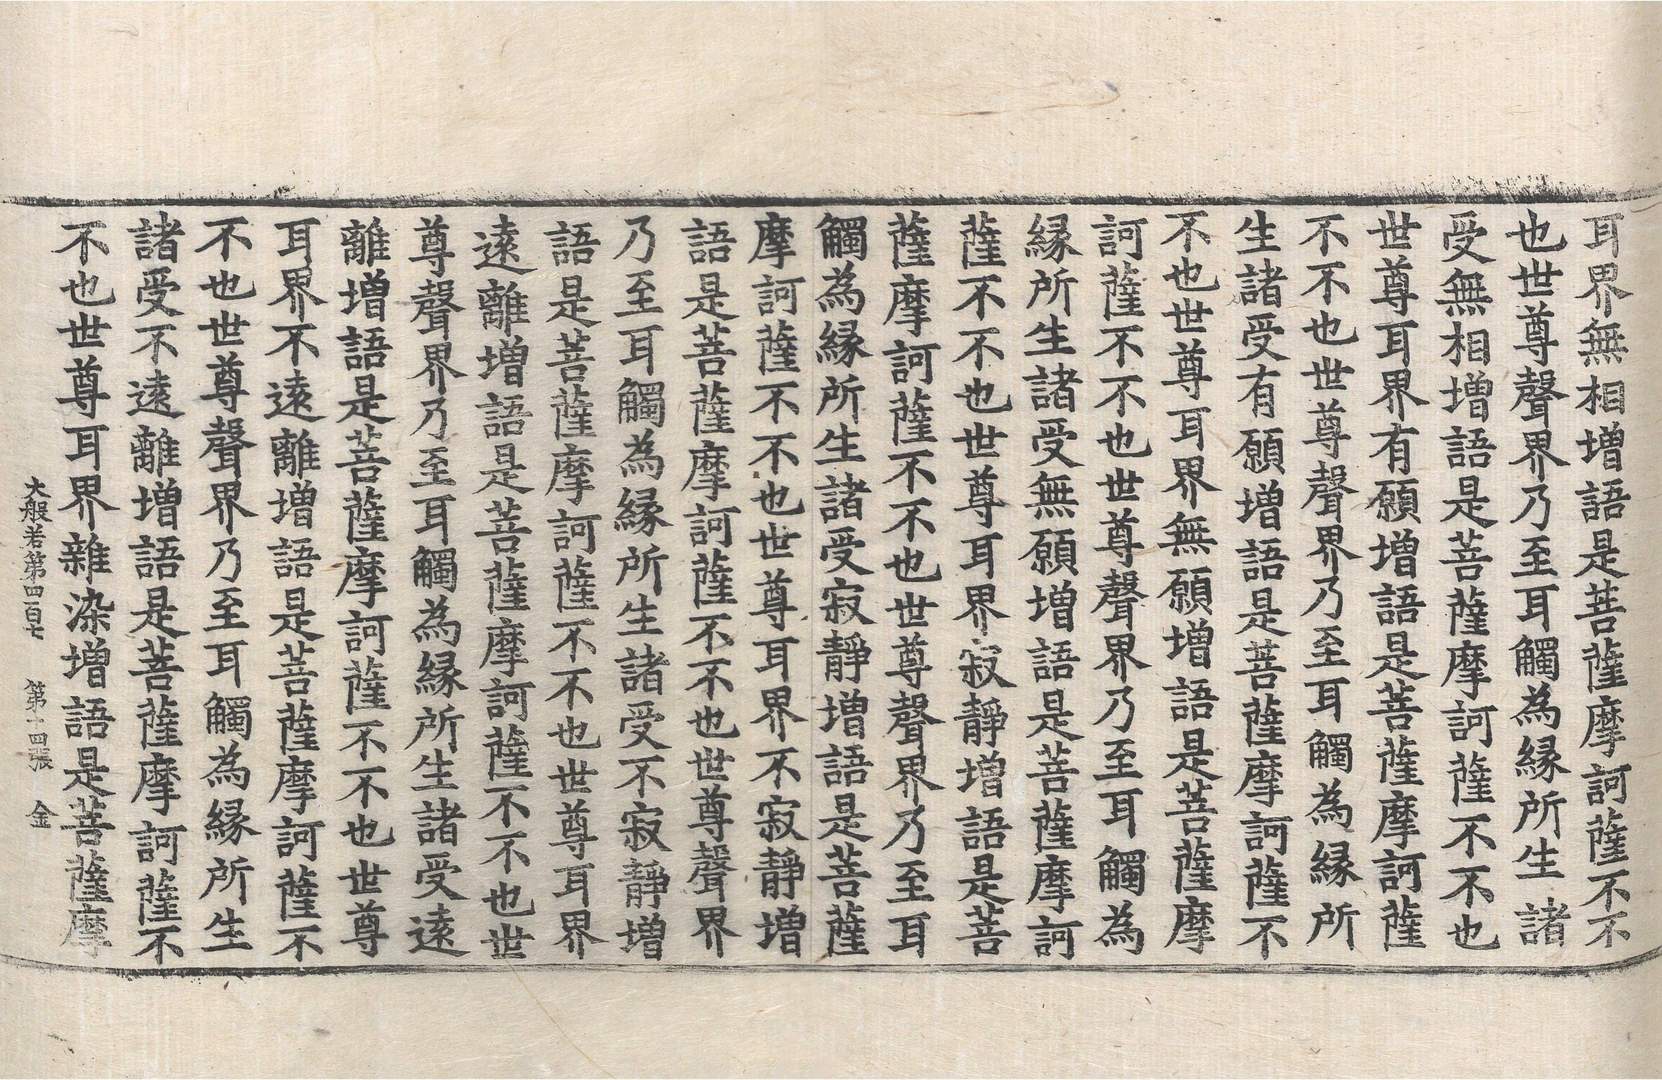 耳界無相增語是菩薩摩訶薩不不
也世尊聲界乃至耳觸為緣所生諸
受無相增語是菩薩摩訶薩不不也
世尊耳界有願增語是菩薩摩訶薩
不不也世尊聲界乃至耳觸為緣所
生諸受有願增語是菩薩摩訶薩不
不也世尊耳界無願增語是菩薩摩
訶薩不不也世尊聲界乃至耳觸為
緣所生諸受無願增語是菩薩摩訶
薩不不也世尊耳界寂靜增語是菩
薩摩訶薩不不也世尊聲界乃至耳
觸為緣所生諸受寂靜增語是菩薩
摩訶薩不不也世尊耳界不寂靜增
語是菩薩摩訶薩不不也世尊聲界
乃至耳觸為緣所生諸受不寂靜增
語是菩薩摩訶薩不不也世尊耳界
遠離增語是菩薩摩訶薩不不也世
尊聲界乃至耳觸為緣所生諸受遠
離增語是菩薩摩訶薩不不也世尊
耳界不遠離增語是菩薩摩訶薩不
不也世尊聲界乃至耳觸為緣所生
諸受不遠離增語是菩薩摩訶薩不
不也世尊耳界雜染增語是菩薩摩
大般若第四百七 第十四張 金